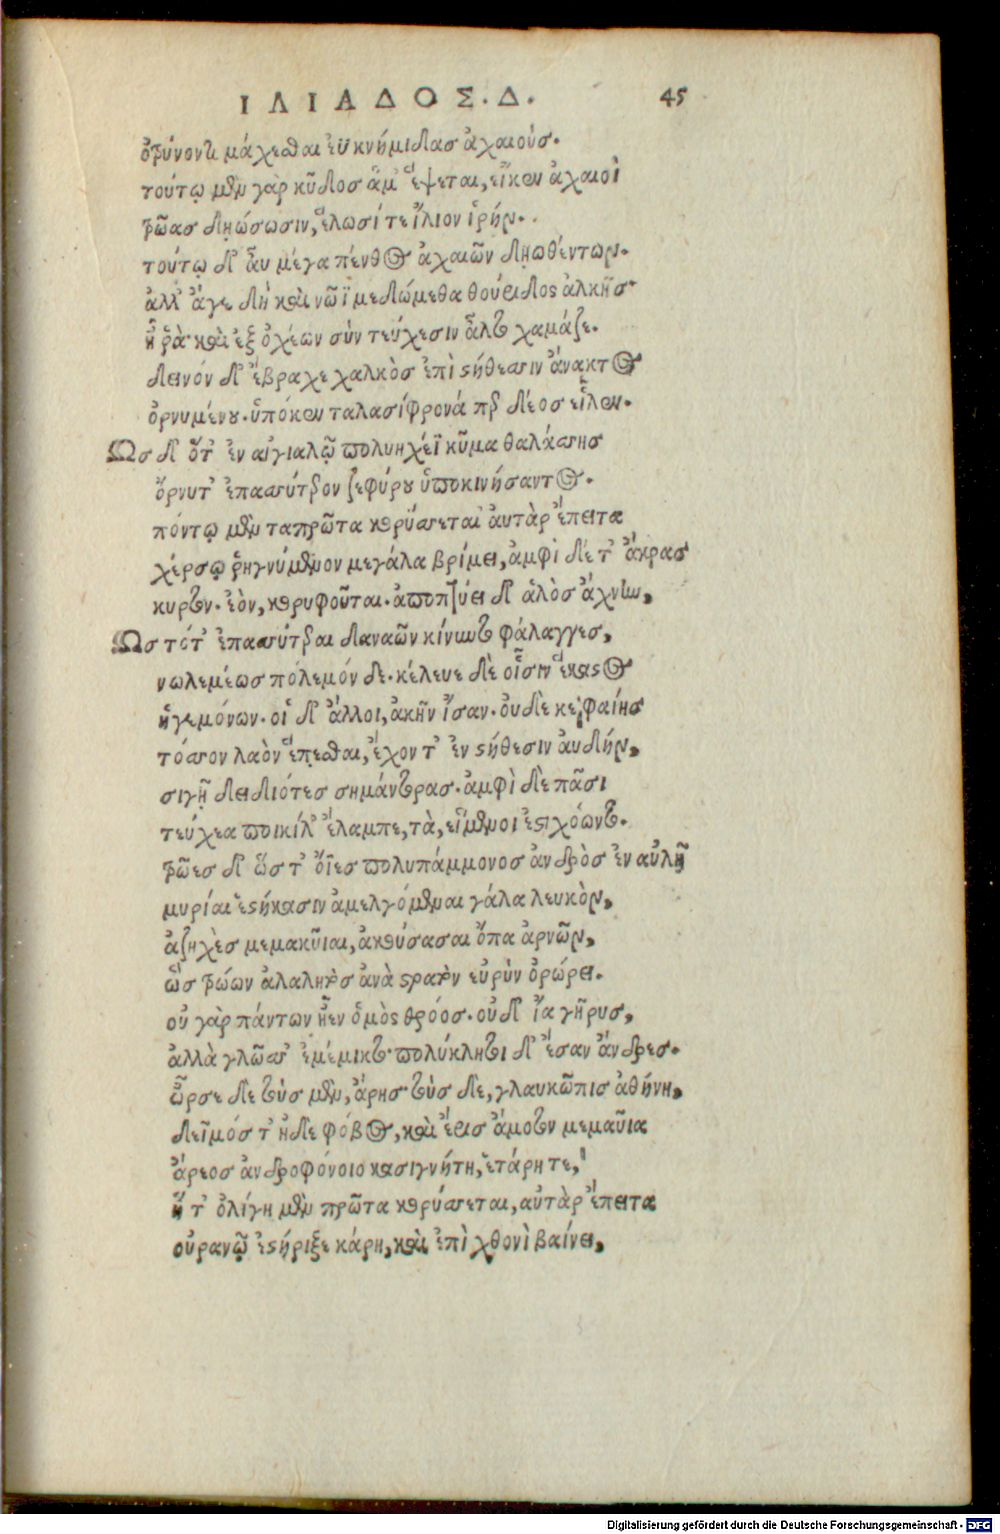 ΙΛΙΑΔΟΣ. Δ. 45
ὀτρύνοντι μάχεσθαι ἐϋκνήμιδας ἀχαιούς.
τούτῳ μὲν γὰρ κῦδος ἅμ' ἕψεται, εἴκεν ἀχαιοὶ
τρῶας δῃώσωσιν, ἕλωσί τε ἴλιον ἱρήν.
τούτῳ δ' αὖ μέγα πένθος ἀχαιῶν δῃωθέντων.
ἀλλ' ἄγε δὴ καὶ νῶϊ μεδώμεθα θούριδος ἀλκῆς·
ἦ ῥὰ καὶ ἐξ ὀχέων σὺν τεύχεσιν ἆλτο χαμάζε.
δεινόν δ' ἔβραχε χαλκὸς ἐπὶ στήθεσσιν ἄνακτος
ὀρνυμένου. ὑπόκεν ταλασίφρονά περ δέος εἷλεν.
Ως δ' ὅτ' ἐν αἰγιαλῷ πολυηχέϊ κῦμα θαλάσσης
ὄρνυτ' ἐπασσύτερον ζεφύρου ὑποκινήσαντος.
πόντῳ μὲν ταπρῶτα κορύσσεται αὐτὰρ ἔπειτα
χέρσῳ ῥηγνύμενον μεγάλα βρέμει, ἀμφὶ δέ τ' ἄκρας
κυρτὸν. ἐὸν, κορυφοῦται. ἀποπτύει δ' ἁλὸς ἄχνην,
Ως τότ' ἐπασσύτεραι δαναῶν κίνυντο φάλαγγες,
νωλεμέως πόλεμόν δε. κέλευε δὲ οἷσιν ἕκαστος
ἡγεμόνων. οἱ δ' ἄλλοι, ἀκὴν ἴσαν. οὐδὲ κε φαίης
τόσσον λαὸν ἕπεσθαι, ἔχοντ' ἐν στήθεσιν αὐδὴν,
σιγῇ δειδιότες σημάντορας. ἀμφὶ δὲ πᾶσι
τεύχεα ποικίλ' ἔλαμπε, τὰ, εἱμένοι ἐστιχόωντο.
τρῶες δ' ὥς τ' ὄϊες πολυπάμμονος ἀνδρὸς ἐν αὐλῇ
μυρίαι ἑστήκασιν ἀμελγόμεναι γάλα λευκὸν,
ἀζηχὲς μεμακῦιαι, ἀκούσασαι ὄπα ἀρνῶν,
ὣς τρώων ἀλαλητὸς ἀνὰ στρατὸν εὐρὺν ὀρώρει.
οὐ γὰρ πάντων ἦεν ὁμὸς θρόος. οὐδ' ἴα γῆρυς,
ἀλλὰ γλῶσσ' ἐμέμικτο· πολύκλητοι δ' ἔσαν ἄνδρες.
ὦρσε δὲ τοὺς μὲν, ἄρης· τοὺς δὲ, γλαυκῶπις ἀθήνη,
δεῖμός τ' ἠδὲ φόβος, καὶ ἔρις ἄμοτον μεμαῦια
ἄρεος ἀνδροφόνοιο κασιγνήτη, ἑτάρη τε,
ἥ τ' ὀλίγη μὲν πρῶτα κορύσσεται, αὐτὰρ ἔπειτα
οὐρανῷ ἐστήριξε κάρη, καὶ ἐπὶ χθονὶ βαίνει,
Digitalisierung gefördert durch die Deutsche Forschungsgemeinschaft - DFG